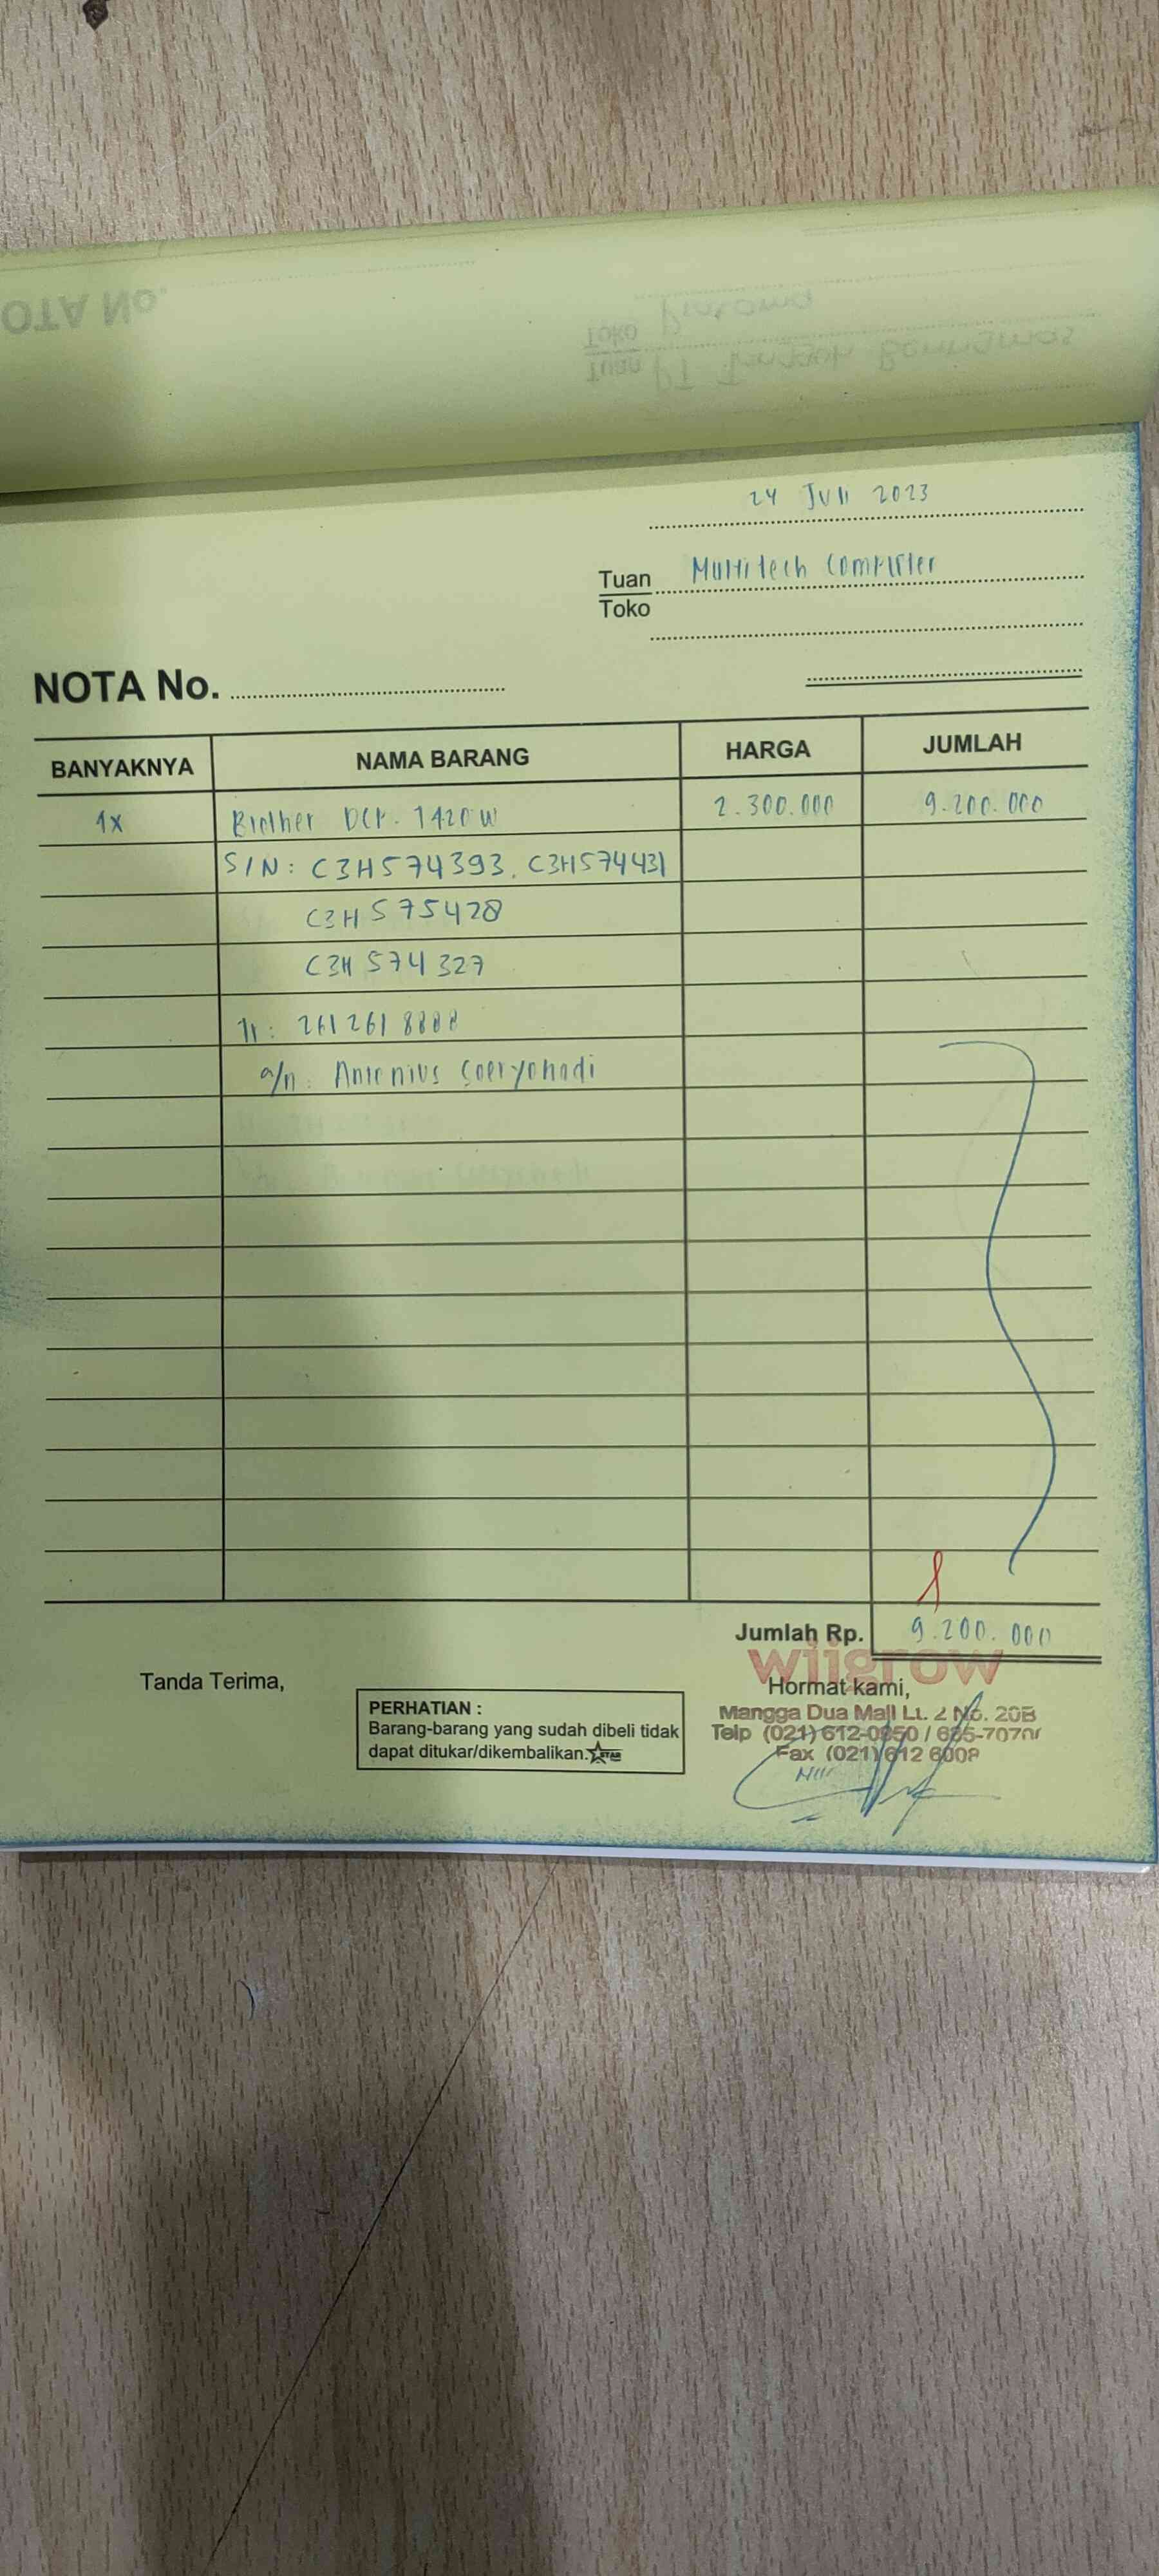 24 Juli 2023
Tuan Multitech Computer
Toko
NOTA No.
BANYAKNYA NAMA BARANG HARGA JUMLAH
4x Brother DCP. T420 W 2.300.000 9.200.000
S/N: C3H574393, C3H574431
C3H575428
C3H574327
Tr: 261 261 8888
a/n: Antonius Soeryohadi
Jumlah Rp. 9.200.000
wiigrow
Tanda Terima, Hormat kami,
PERHATIAN :
Barang-barang yang sudah dibeli tidak
dapat ditukar/dikembalikan. STAR
Mangga Dua Mall Lt. 2 No. 20B
Telp (021) 612-0850 /
Fax (021) 612 6008